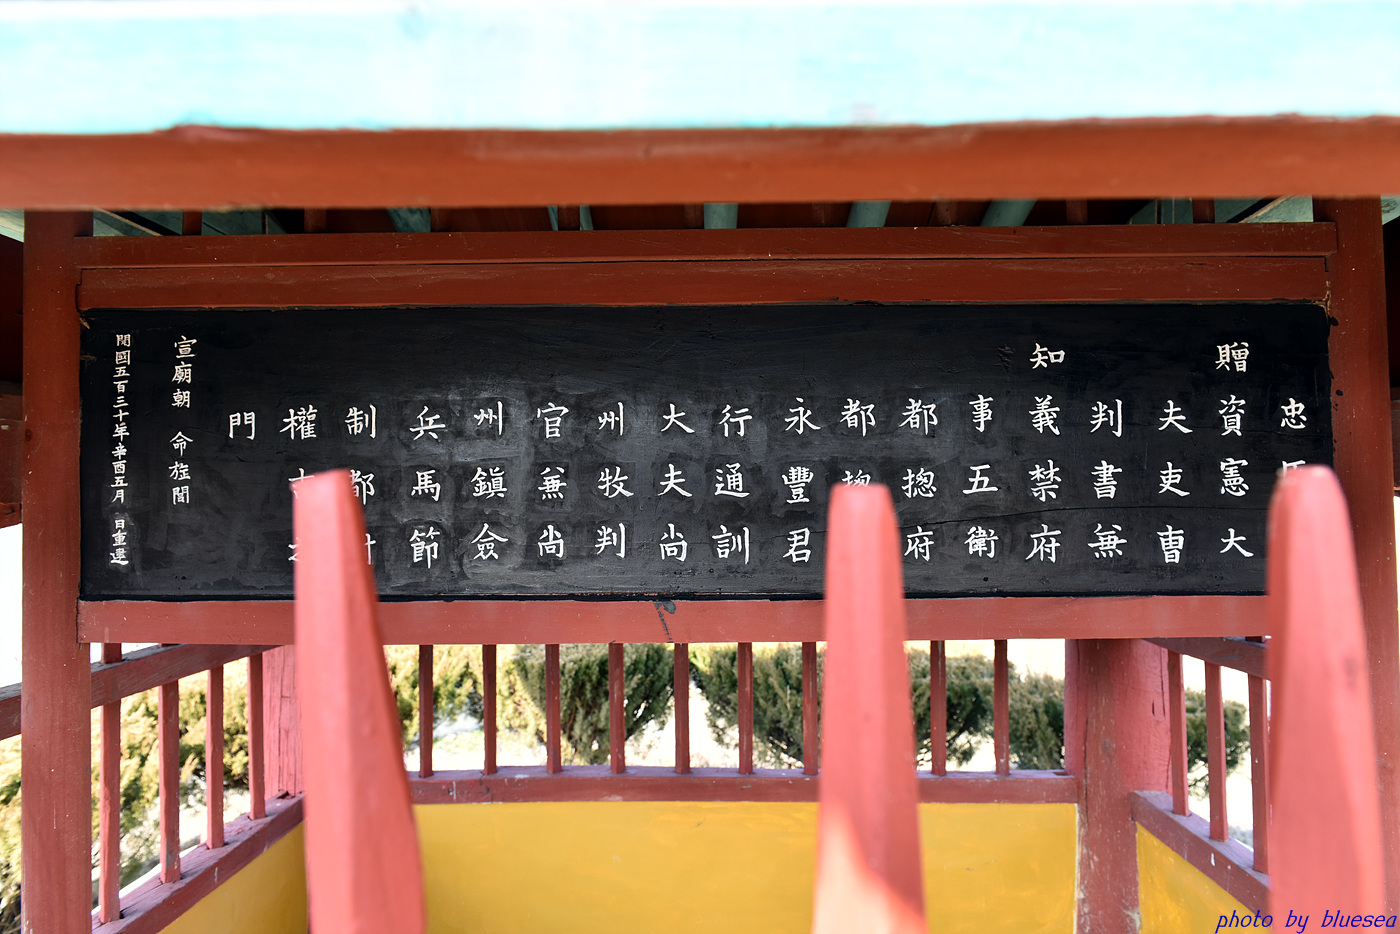 忠
贈資憲大
夫吏曺
判書兼
知義禁府
事五衛
都摠府
都摠
永豐君
行通訓
大夫尚
州牧判
官兼尚
州鎭僉
兵馬節
制都
權
門
宣廟朝 命旌閭
開國五百三十年辛酉五月 日重建
photo by bluesea